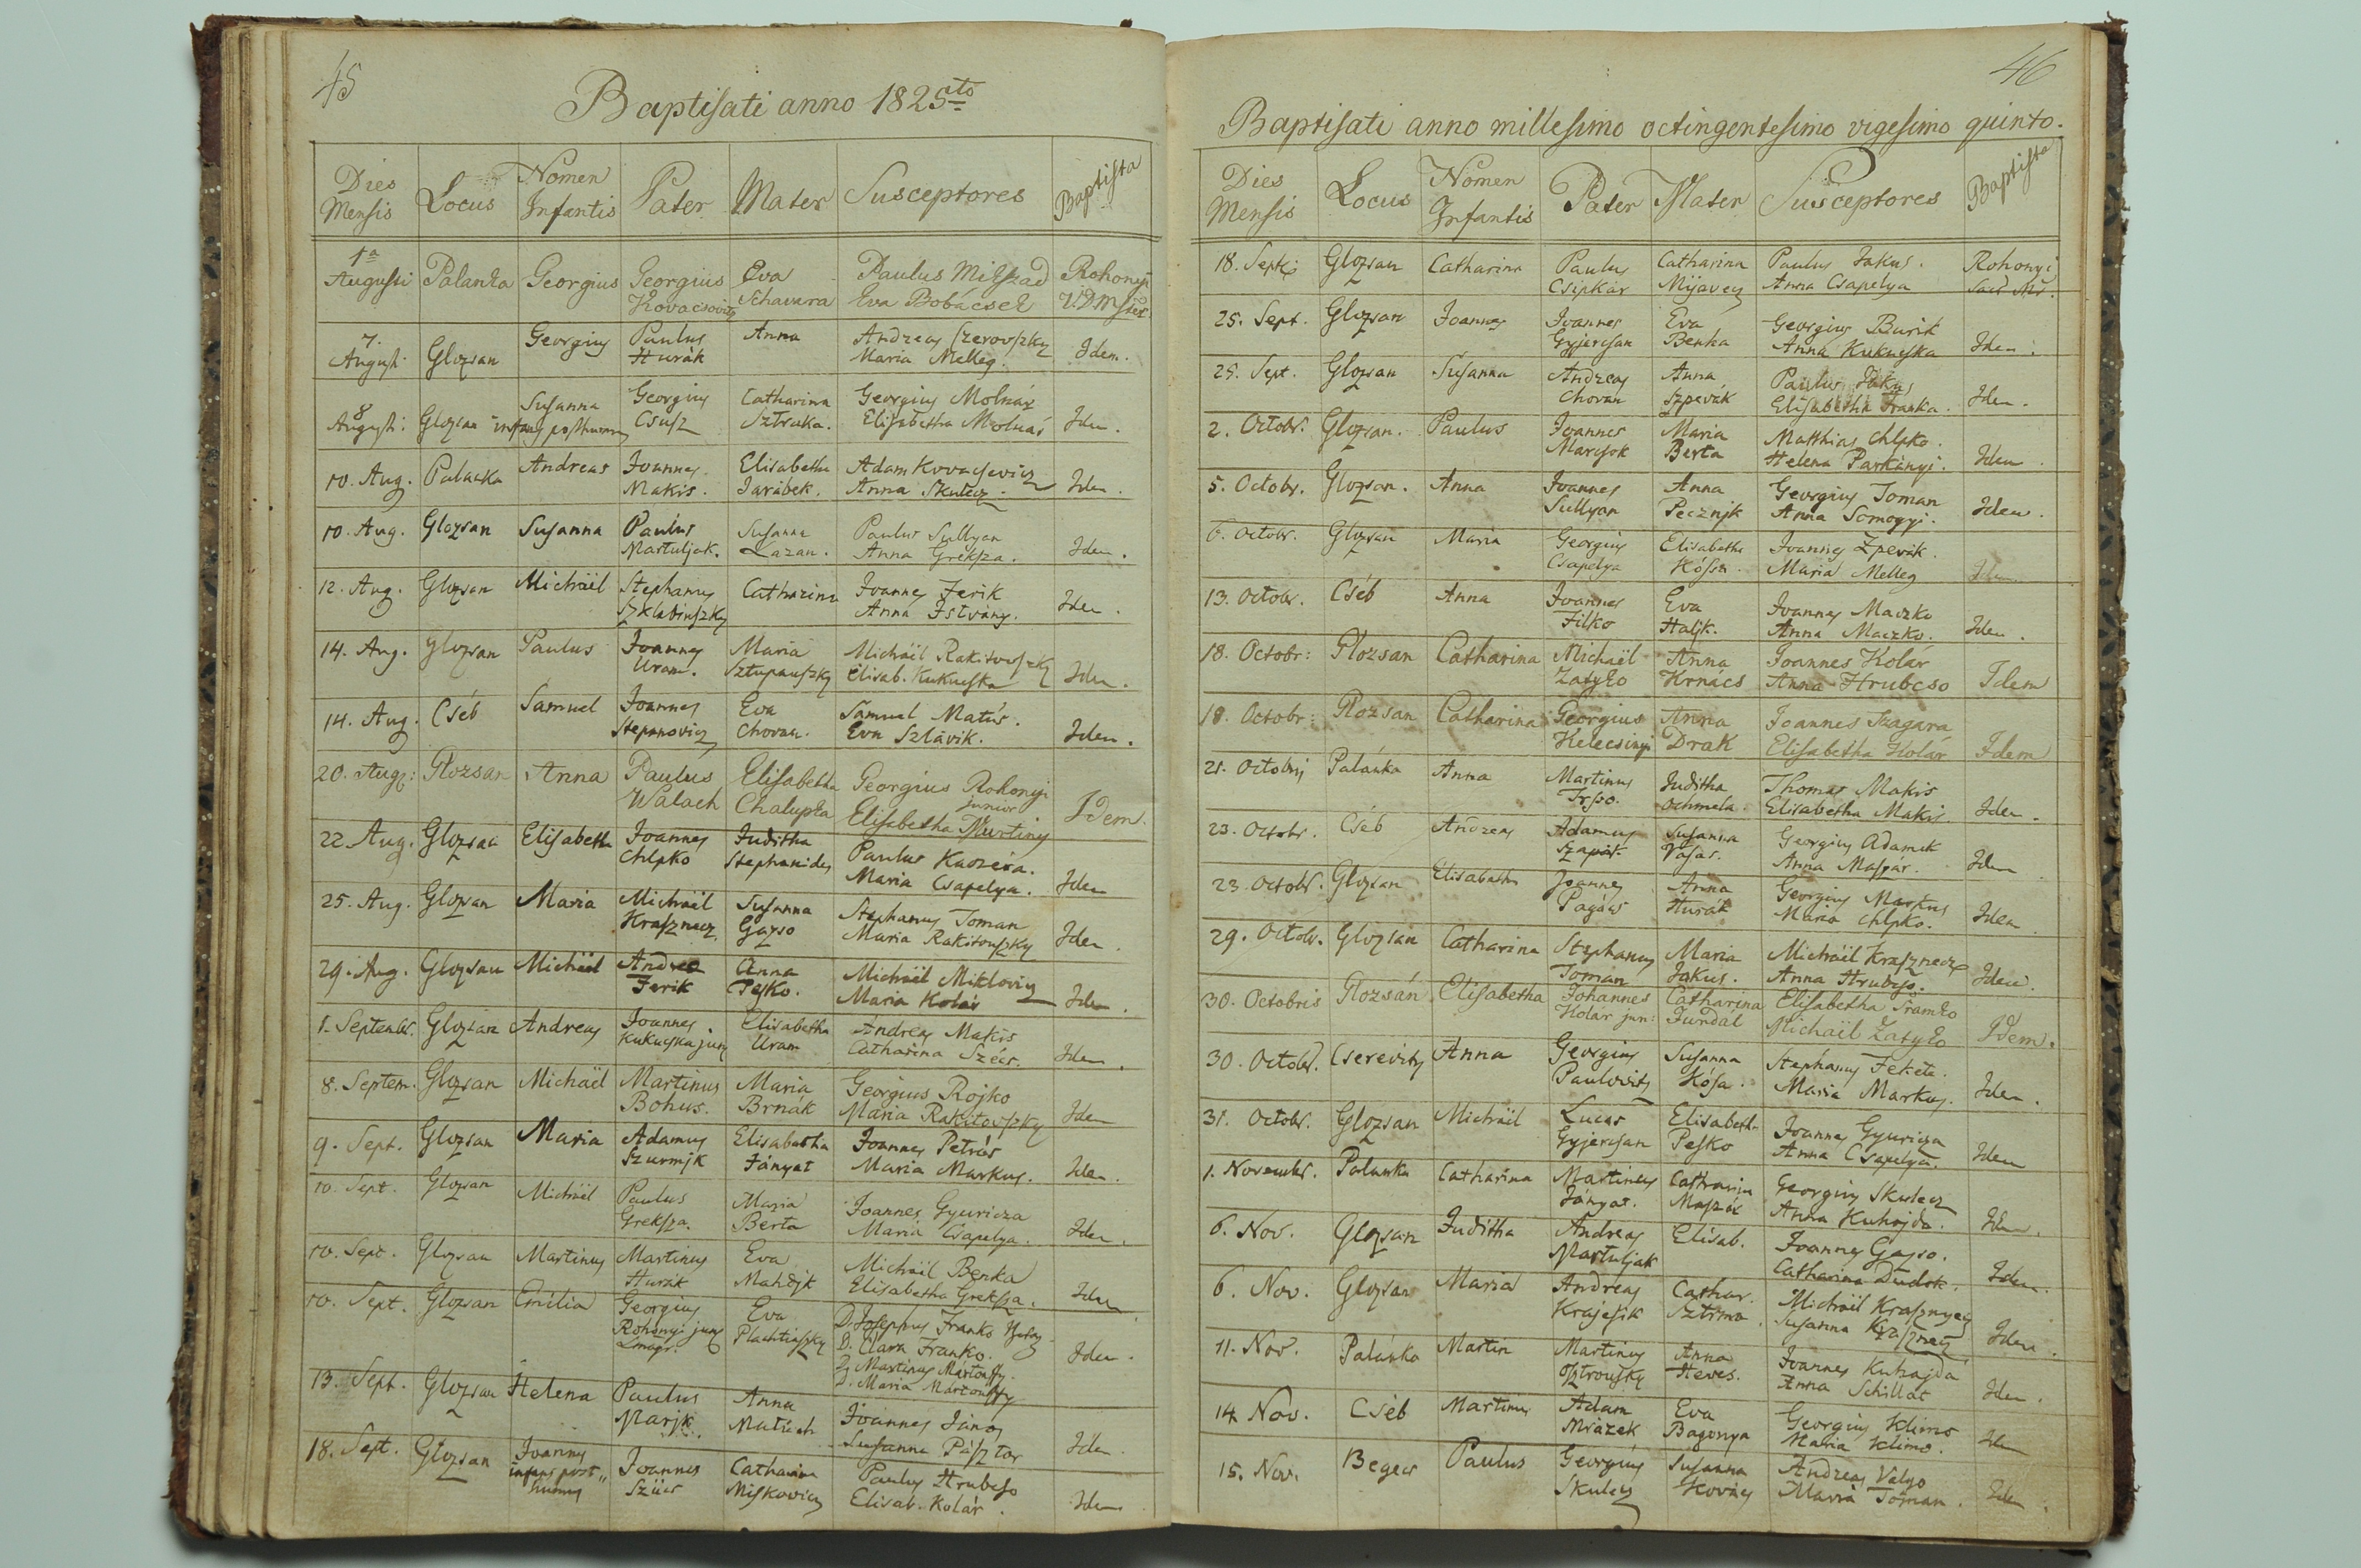 45
Baptisati anno 1825to
Dies Mensis Locus Nomen Infantis Pater Mater Susceptores Baptista
1a Augusti Palanka Georgius Georgius Kovacsovitz Eva Schavara Paulus Milszad Eva Bobácsek Rohonyi V.D.M.
7. Augusti Glozsan Georgius Paulus Hurák Anna Andreas Maria Melleg. Idem.
8 Augusti: Glozsan Susanna infans posthuma Georgius Csusz Catharina Sztraka. Georgius Molnár Elisabetha Molnár Idem.
10. Aug. Palanka Andreas Joannes Makis. Elisabetha Jarábek. Adam Kovacsevicz Anna Skulecz. Idem.
10. Aug. Glozsan Susanna Paulus Martuljak. Susanna Lazan. Paulus Sullyan Anna Greksza. Idem.
12. Aug. Glozsan Michaël Stephanus Catharina Joannes Ferik Anna Istvány. Idem.
14. Aug. Glozsan Paulus Joannes Uram. Maria Sztupauszky Michaël Rakitovszky Elisab. Kukucska Idem.
14. Aug. Cséb Samuel Joannes Stepanovicz Eva Chovan. Samuel Matús. Eva Szlávik. Idem.
20. Aug: Glozsan Anna Paulus Walach Elisabetha Chalupka Georgius Rohonyi junior Elisabetha Martiny Idem.
22 Aug. Glozsan Elisabetha Joannes Chlpko Juditha Stephanides Paulus Kucsera. Maria Csapelya. Idem
25. Aug. Glozsan Maria Michaël Krasznecz. Susanna Gazso Stephanus Toman Maria Rakitovszky Idem.
29. Aug. Glozsan Michaël Andreas Ferik Anna Pesko. Michaël Miklovicz Maria Kolár Idem.
1. Septembr. Glozsan Andreas Joannes Kukucska jun Elisabetha Uram Andreas Makis Catharina Szécs. Idem.
8. Septem. Glozsan Michaël Martinus Bohus. Maria Brnák Georgius Rojko Maria Rakitovszky Idem
9. Sept. Glozsan Maria Adamus Szurmjk Elisabetha Fányat Joannes Petrás Maria Markus. Idem.
10. Sept. Glozsan Michaël Paulus Greksza. Maria Berta Joannes Gyuricza Maria Csapelya. Idem.
10. Sept. Glozsan Martinus Martinus Hurák Eva Michaël Benka Elisabetha Greksza. Idem
10. Sept. Glozsan Emilia Georgius Rohonyi jun Eva Plachtinszky D. Josephus Franko D. Clara Franko. D. Martinus Mártonffy. D. Maria Mártonffy Idem.
13. Sept. Glozsan Helena Paulus Marjk. Anna Joannes János Susanna Pásztor Idem.
18. Sept. Glozsan Joannes infans posthumus Joannes Szücs Catharina Miskovicz Paulus Hrubcso Elisab. Kolár. Idem
46
Baptisati anno millesimo octingentesimo vigesimo quinto.
Dies Mensis Locus Nomen Infantis Pater Mater Susceptores Baptista
18. Sept. Glozsan Catharina Paulus Csipkár Catharina Mijavecz Paulus Jakus. Anna Csapelya Rohonyi
25. Sept. Glozsan Joannes Joannes Gyjercsan Eva Benka Georgius Burik Anna Kukucska Idem.
25. Sept. Glozsan Susanna Andreas Chovan Anna Szpevák Paulus Jakus Elisabetha Franka. Idem.
2. Octobr. Glozsan. Paulus Joannes Marcsok Maria Berta Matthias Chlpko. Helena Parkányi. Idem.
5. Octobr. Glozsan. Anna Joannes Sullyan Anna Pecznjk Georgius Toman Anna Somogyi. Idem.
6. Octobr. Glozsan Maria Georgius Csapelya Elisabetha Kóssa. Joannes Zpevák. Maria Melleg Idem.
13. Octobr. Cséb Anna Joannes Filko Eva Haljk. Joannes Maczko Anna Maczko. Idem.
18. Octobr: Glozsan Catharina Michaël Zatyko Anna Krnács Joannes Kolár Anna Hrubcso Idem
18. Octobr: Glozsan Catharina Georgius Kelecsinyi Anna Drak Joannes Elisabetha Kolár Idem
21. Octobris Palánka Anna Martinus Juditha Ochmela Thomas Makis Elisabetha Makis. Idem.
23. Octobr. Cséb Andreas Adamus Susanna Vásár. Georgius Adamek Anna Maszár. Idem
23. Octobr. Glozsan Elisabetha Joannes Pagács Anna Hurák Georgius Markus Maria Chlpko. Idem
29. Octobr. Glozsan Catharina Stephanus Toman Maria Jakus. Michaël Krasznecz Anna Hrubcso. Idem.
30. Octobris Glozsán Elisabetha Johannes Kolár jun: Catharina Fundál Elisabetha Sramko Michaël Zatyko Idem.
30. Octobr. Cserevitz Anna Georgius Paulovits Susanna Kósa. Stephanus Fekete. Maria Markus. Idem.
31. Octobr. Glozsan Michaël Lucas Gyjercsan Elisabeth Pesko Joannes Gyuricza Anna Csapelya. Idem
1. Novembr. Palanka Catharina Martinus Fányat. Catharina Maszár Georgius Skulecz Anna Kuhajda. Idem.
6. Nov. Glozsan Juditha Andreas Martuljak Elisab. Joannes Gazso. Catharina Dudok. Idem.
6. Nov. Glozsan Maria Andreas Krajcsik Cathar. Michaël Krasznyecz Susanna Krasznecz Idem.
11. Nov. Palánka Martin Martinus Osztrovszky Anna Heves. Joannes Kuhajda Anna Schillat Idem.
14. Nov. Cséb Martinus Adam Mrázek Eva Bagonya Georgius Klimo Maria Klimo. Idem
15. Nov. Begecs Paulus Georgius Skulecz Susanna Kovács Andreas Valyo Maria Toman. Idem.